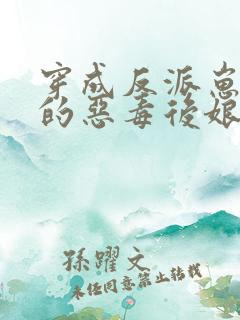 穿成反派崽
的惡毒後娘
孫躍文
未经同意禁止转载